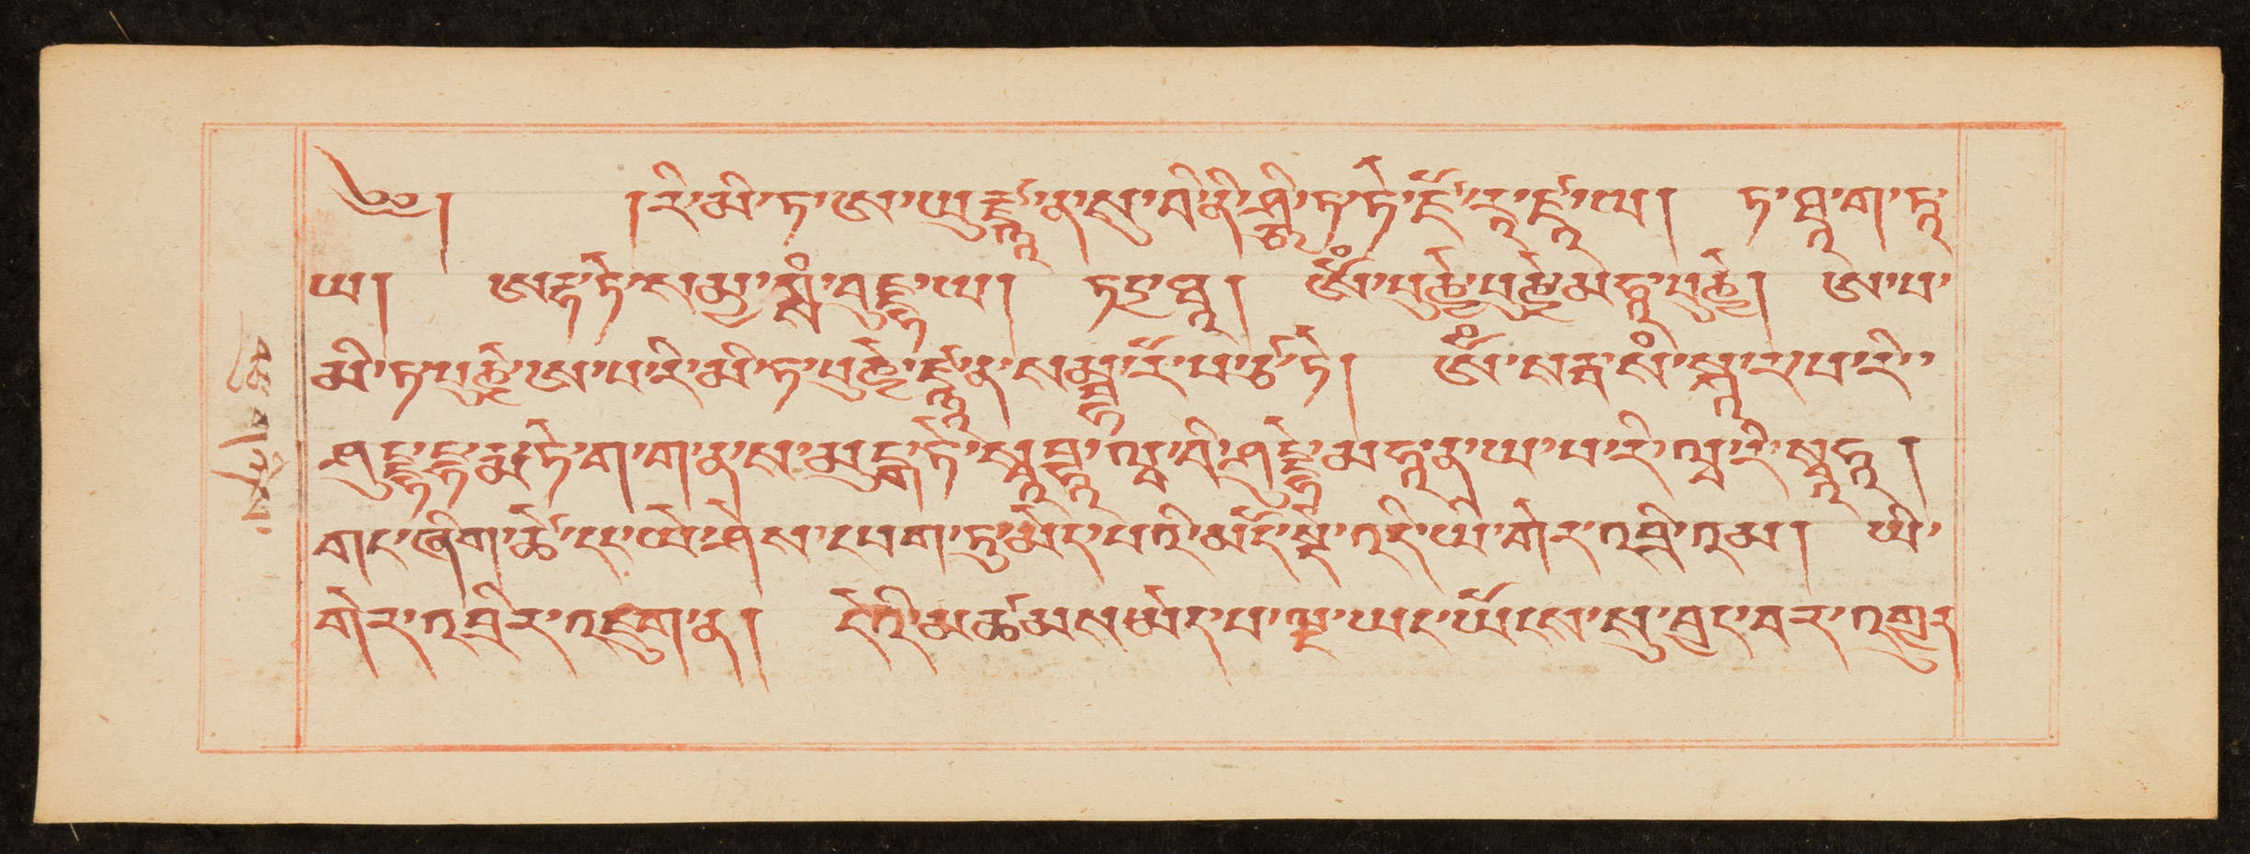 ༄༅། །རི་མི་ཏ་ཨ་ཡུརྫྙཱ་ན་སུ་བི་ནི་ཤྩི་ཏ་ཏེ་ཛོ་རཱ་ཛཱ་ཡ། ཏ་ཐཱ་ག་ཏཱ་
ཡ། ཨརྷ་ཏེ་སམྱ་ཀྶཾ་བུདྡྷ་ཡ། ཏདྱ་ཐཱ། ཨོཾ་པུཎྱེ་པུཎྱེ་མ་ཧཱ་པུཎྱེ། ཨ་པ་
མི་ཏ་པུཎྱེ་ཨ་པ་རི་མི་ཏ་པུཎྱེ་ཛྙཱ་ན་སམྦྷཱ་རོ་པ་ཙི་ཏེ། ཨོཾ་སརྦ་སཾ་སྐཱ་ར་པ་རི་
ཤུདྡྷ་དྷརྨ་ཏེ་ག་ག་ན་ས་མུདྒ་ཏེ་སྭ་བྷཱ་ཝ་བི་ཤུདྡྷེ་མ་ཧཱ་ན་ཡ་པ་རི་ཝ་རི་སྭཱ་ཧཱ།
གང་ཞིག་ཚེ་དང་ཡེ་ཤེས་དཔག་ཏུ་མེད་པའི་མདོ་སྡེ་འདི་ཡི་གེར་འབྲི་འམ། ཡི་
གེར་འབྲིར་འཇུག་ན། དེའི་མཚམས་མེད་པ་ལྔ་ཡང་ཡོངས་སུ་བྱང་བར་འགྱུར